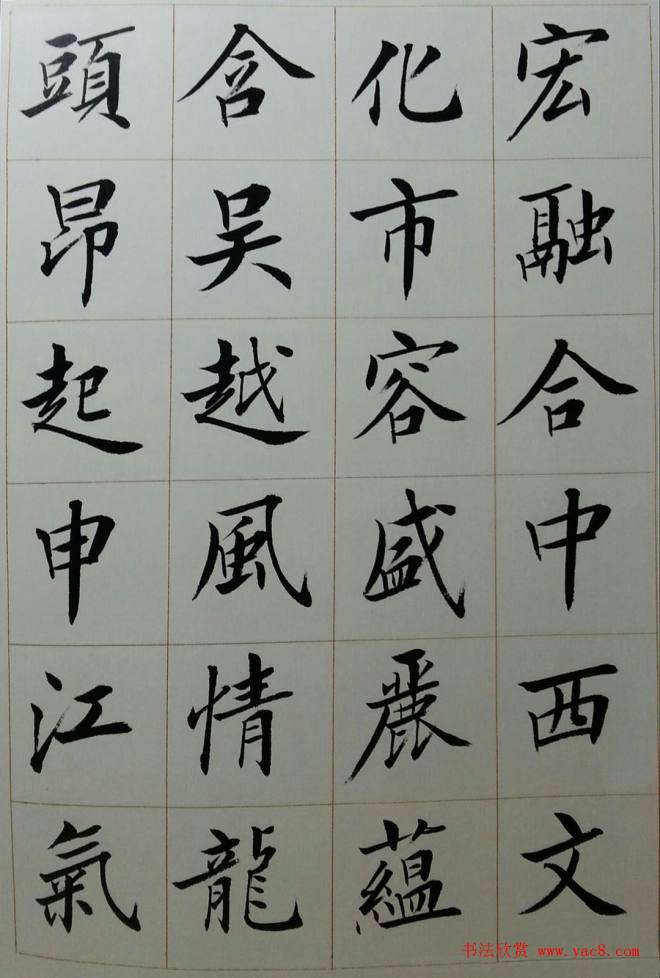 宏融合中西文
化市容盛麗蘊
含吴越風情龍
頭昂起申江氣
书法欣赏 www.yac8.com